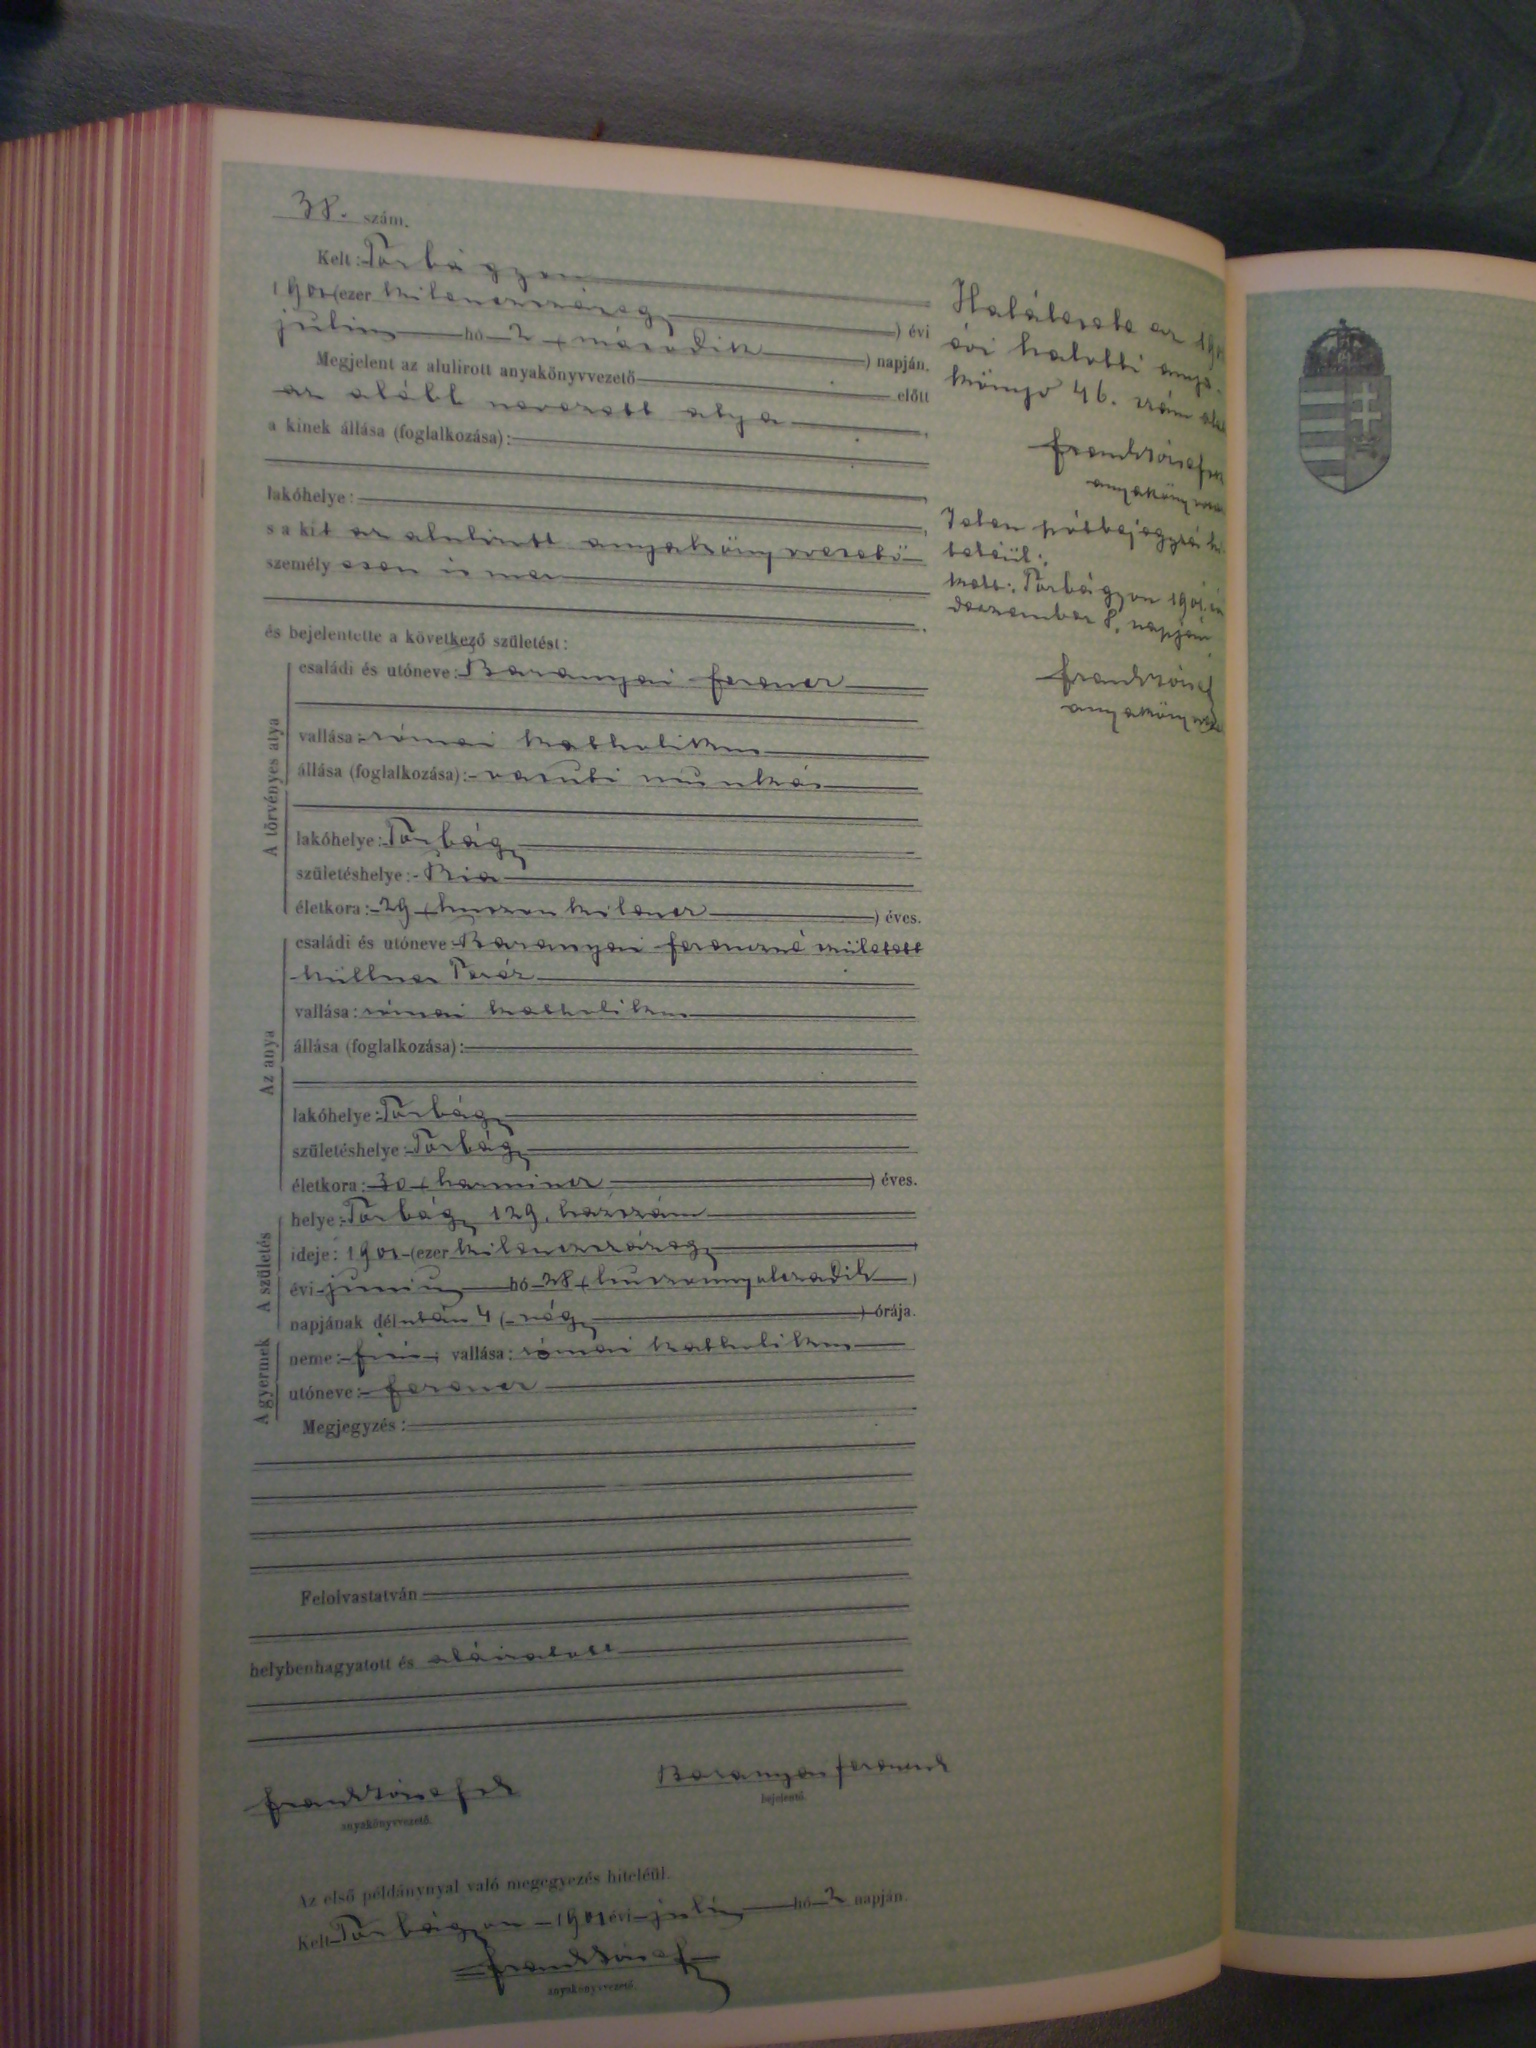 38. szám.
Kelt: Törbágyon
1901 (ezer kilenczszázegy) évi
julius hó 2 (második) napján.
Megjelent az alulirott anyakönyvvezető előtt
az alább nevezett atya,
a kinek állása (foglalkozása):
lakóhelye:
s a kit az alulirott anyakönyvvezető
személyesen ismer
és bejelentette a következő születést:
A törvényes atya
családi és utóneve: Baranyai Ferencz
vallása: római katholikus
állása (foglalkozása): vasuti munkás
lakóhelye: Törbágy
születéshelye: Bia
életkora: 29 (huszonkilencz) éves.
Az anya
családi és utóneve: Baranyai Ferenczné született
Küllner Teréz
vallása: római katholikus
állása (foglalkozása):
lakóhelye: Törbágy
születéshelye: Törbágy
életkora: 30 (harmincz) éves.
A születés
helye: Törbágy 129. házszám
ideje: 1901 (ezer kilenczszázegy
évi junius hó 28 (huszonnyolczadik)
napjának délután 4 (négy) órája.
A gyermek
neme: fiú; vallása: római katholikus
utóneve: Ferencz
Megjegyzés:
Felolvastatván
helybenhagyatott és aláiratott
Frank József
anyakönyvvezető.
Baranyai Ferencz
bejelentő.
Az első példánynyal való megegyezés hiteléül.
Kelt Törbágyon 1901 évi julius hó 2 napján.
Frank József
anyakönyvvezető.
Halálesete az 1901
évi halotti anya-
könyv 46. szám alatt
Frank József
Jelen pótbejegyzés hi-
teléül:
Kelt: Törbágyon 1901. évi
deczember 8. napján
Frank József